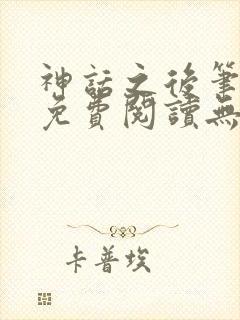 神話之後筆
免費閱讀無
卡普埃